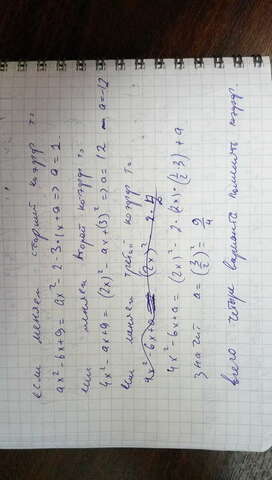 если меняем старший коэфф. то
ax² - 6x + 9 = ax² - 2·3·1x + a ⇒ a = 1
если меняем второй коэфф. то
4x² - ax + 9 = (2x)² - ax + (3)² ⇒ a = 12 a = -12
если меняем третий коэфф. то
4x² - 6x + a = (2x)² - 2·
4x² - 6x + a = (2x)² - 2·(2x)·(½·3) + a
значит a = (3/2)² = 9/4
всего четыре варианта поменять коэфф.